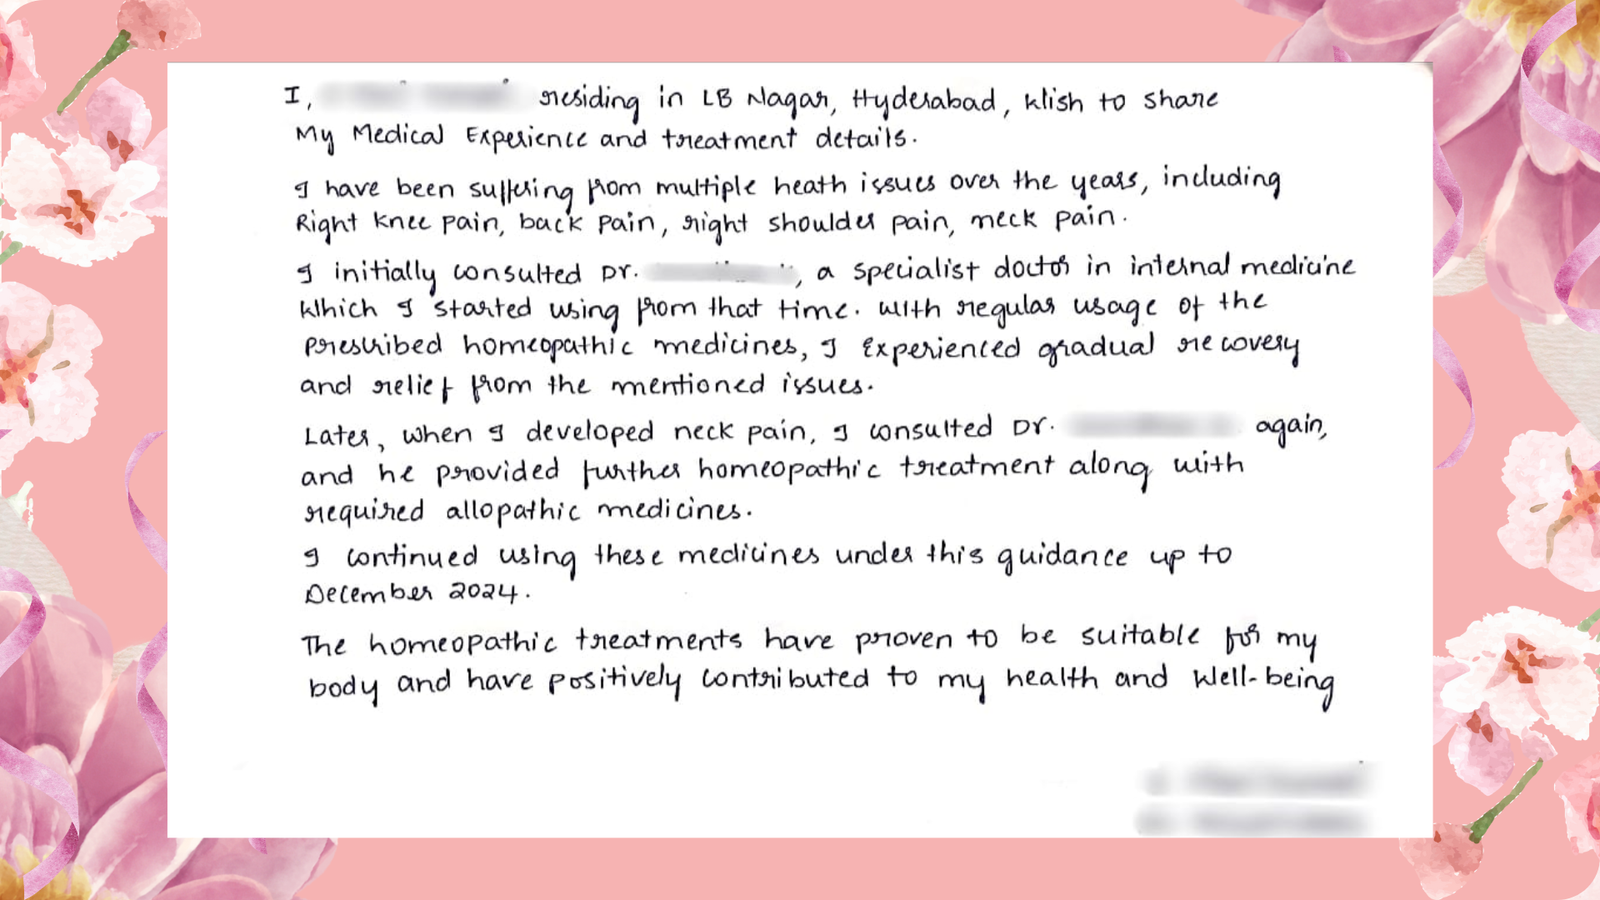 I, residing in LB Nagar, Hyderabad, Wish to share
My Medical Experience and treatment details.
I have been suffering from multiple heath issues over the years, including
Right knee pain, back pain, right shoulder pain, neck pain.
I initially consulted Dr. , a specialist doctor in internal medicine
Which I started using from that time. With regular usage of the
prescribed homeopathic medicines, I experienced gradual recovery
and relief from the mentioned issues.
Later, when I developed neck pain, I consulted Dr. again,
and he provided further homeopathic treatment along with
required allopathic medicines.
I continued using these medicines under this guidance up to
December 2024.
The homeopathic treatments have proven to be suitable for my
body and have positively contributed to my health and Well-being